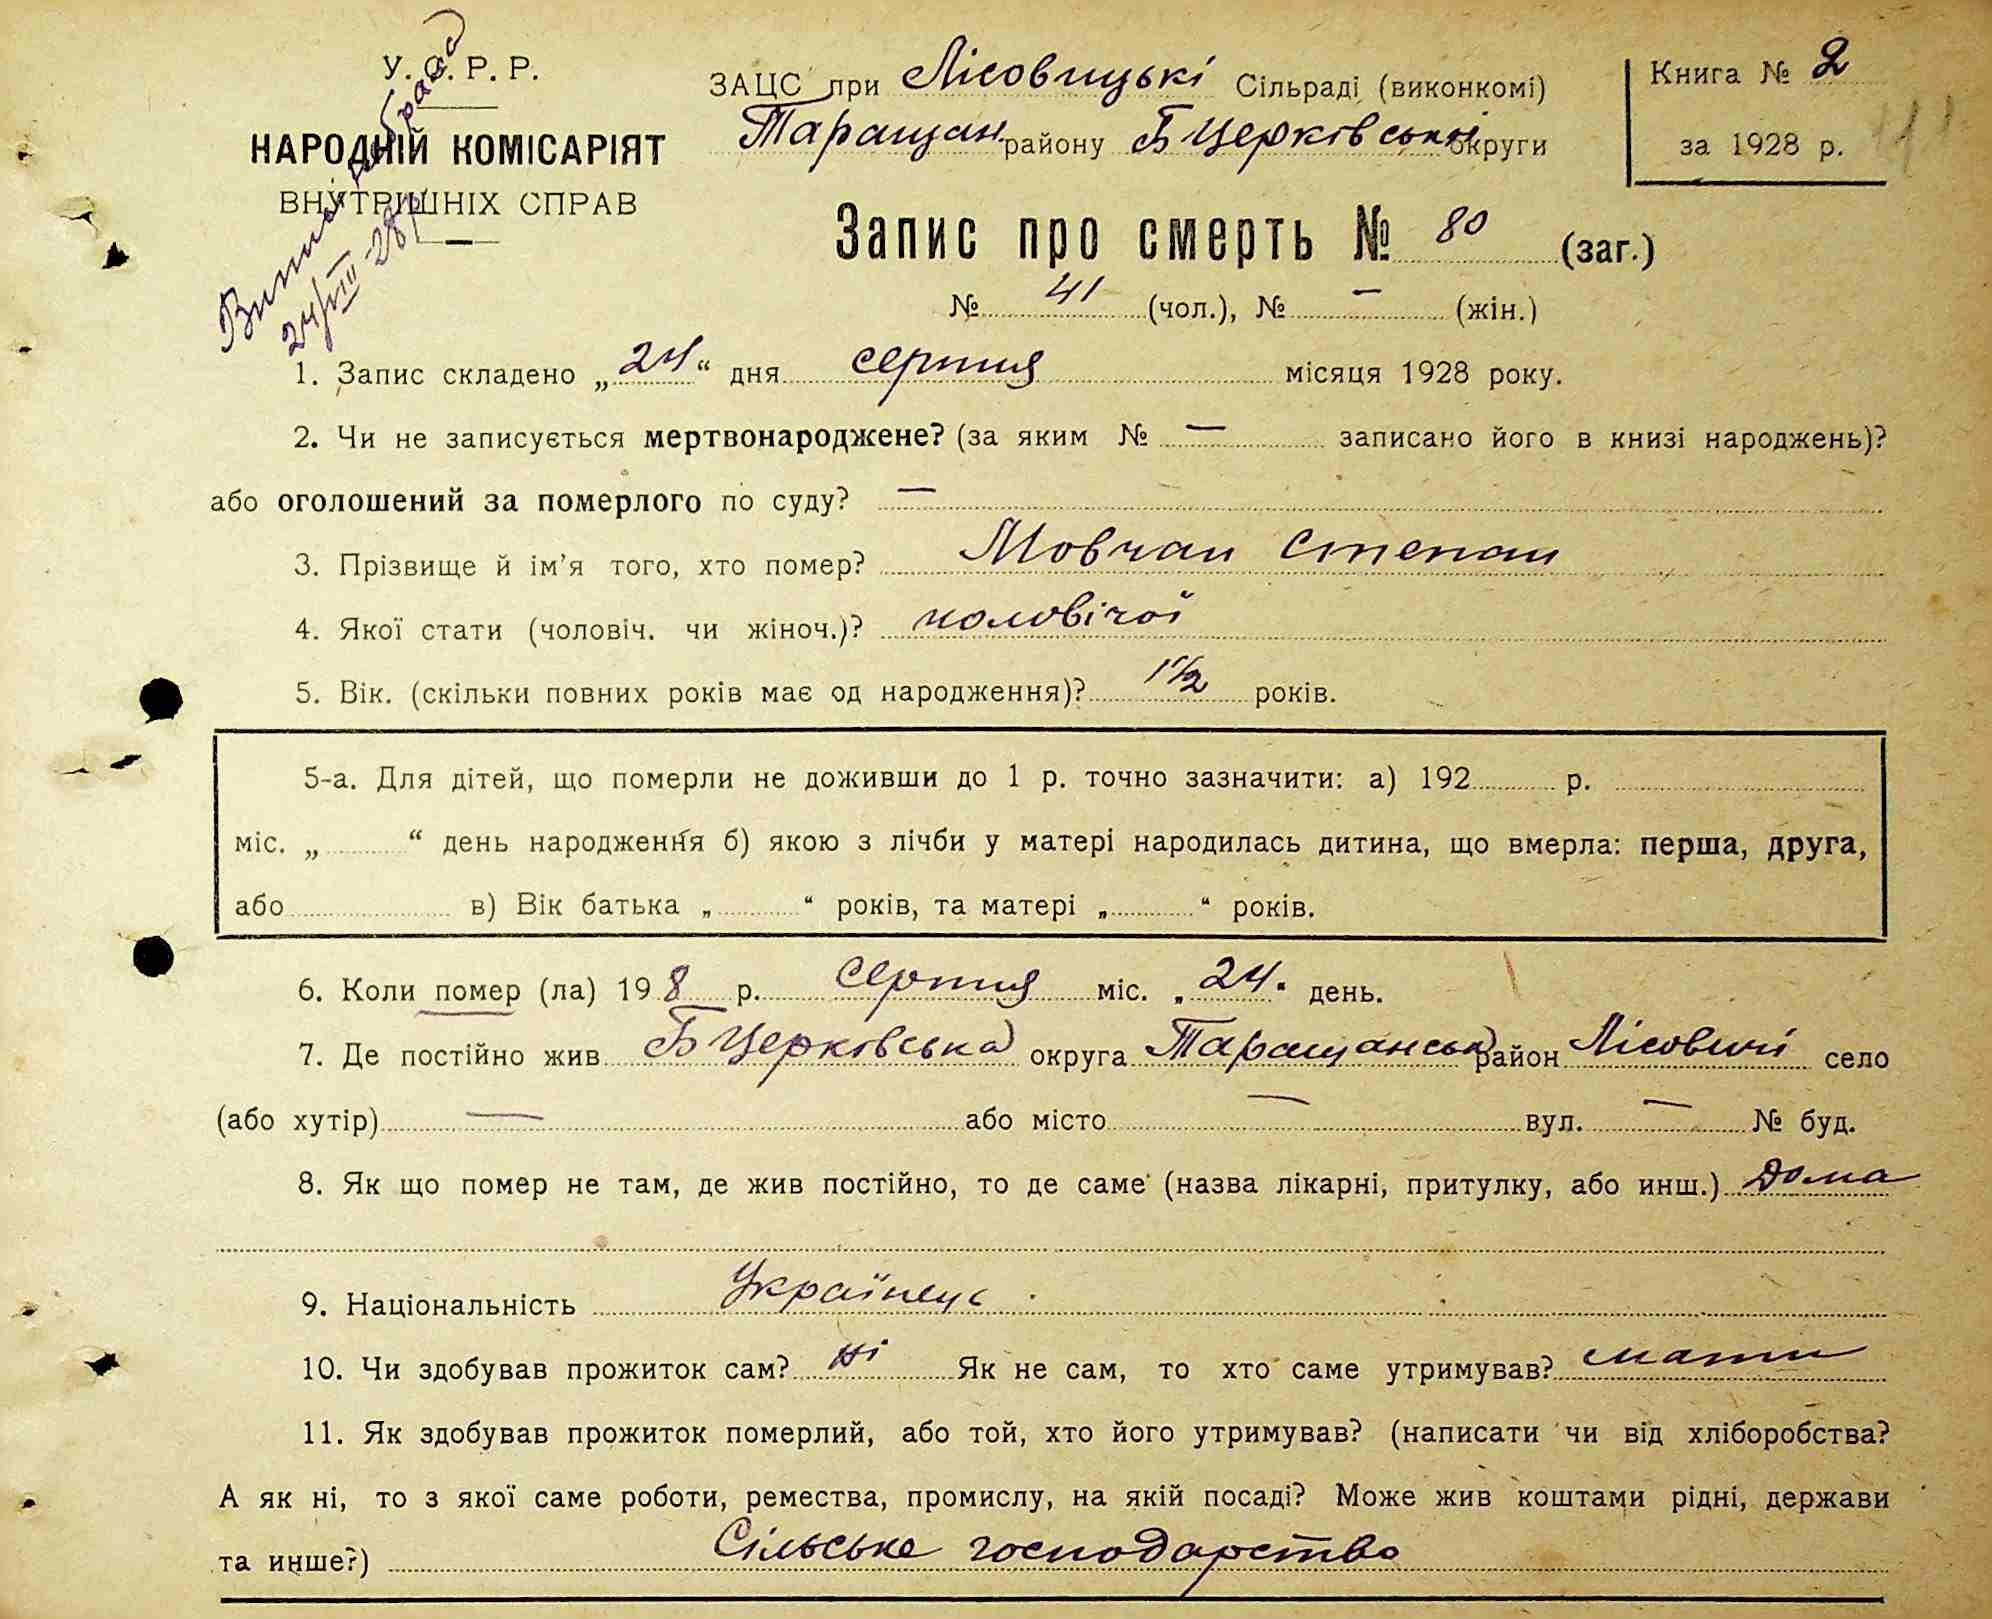 У. С. Р. Р.
НАРОДНІЙ КОМІСАРІЯТ
ВНУТРІШНІХ СПРАВ
24/VIII-28р
ЗАЦС при Лісовицькі Сільраді (виконкомі)
Таращан району БЦерківської округи
Книга № 2
за 1928 р.
Запис про смерть № 80 (заг.)
№ 41 (чол.), № — (жін.)
1. Запис складено „24“ дня серпня місяця 1928 року.
2. Чи не записується мертвонароджене? (за яким № — записано його в книзі народжень)?
або оголошений за померлого по суду? —
3. Прізвище й ім'я того, хто помер? Мовчан Степан
4. Якої стати (чоловіч. чи жіноч.)? чоловічої
5. Вік. (скільки повних років має од народження)? 1 1/2 років.
5-а. Для дітей, що померли не доживши до 1 р. точно зазначити: а) 192 р.
міс. „ “ день народження б) якою з лічби у матері народилась дитина, що вмерла: перша, друга,
або в) Вік батька „ “ років, та матері „ “ років.
6. Коли помер (ла) 19 8 р. серпня міс. „24“ день.
7. Де постійно жив БЦерківська округа Таращанськ район Лісовичі село
(або хутір) — або місто — вул. — № буд.
8. Як що помер не там, де жив постійно, то де саме (назва лікарні, притулку, або инш.) Дома
9. Національність Українець
10. Чи здобував прожиток сам? ні Як не сам, то хто саме утримував? мати
11. Як здобував прожиток померлий, або той, хто його утримував? (написати чи від хліборобства?
А як ні, то з якої саме роботи, ремества, промислу, на якій посаді? Може жив коштами рідні, держави
та инше?) Сільське господарство